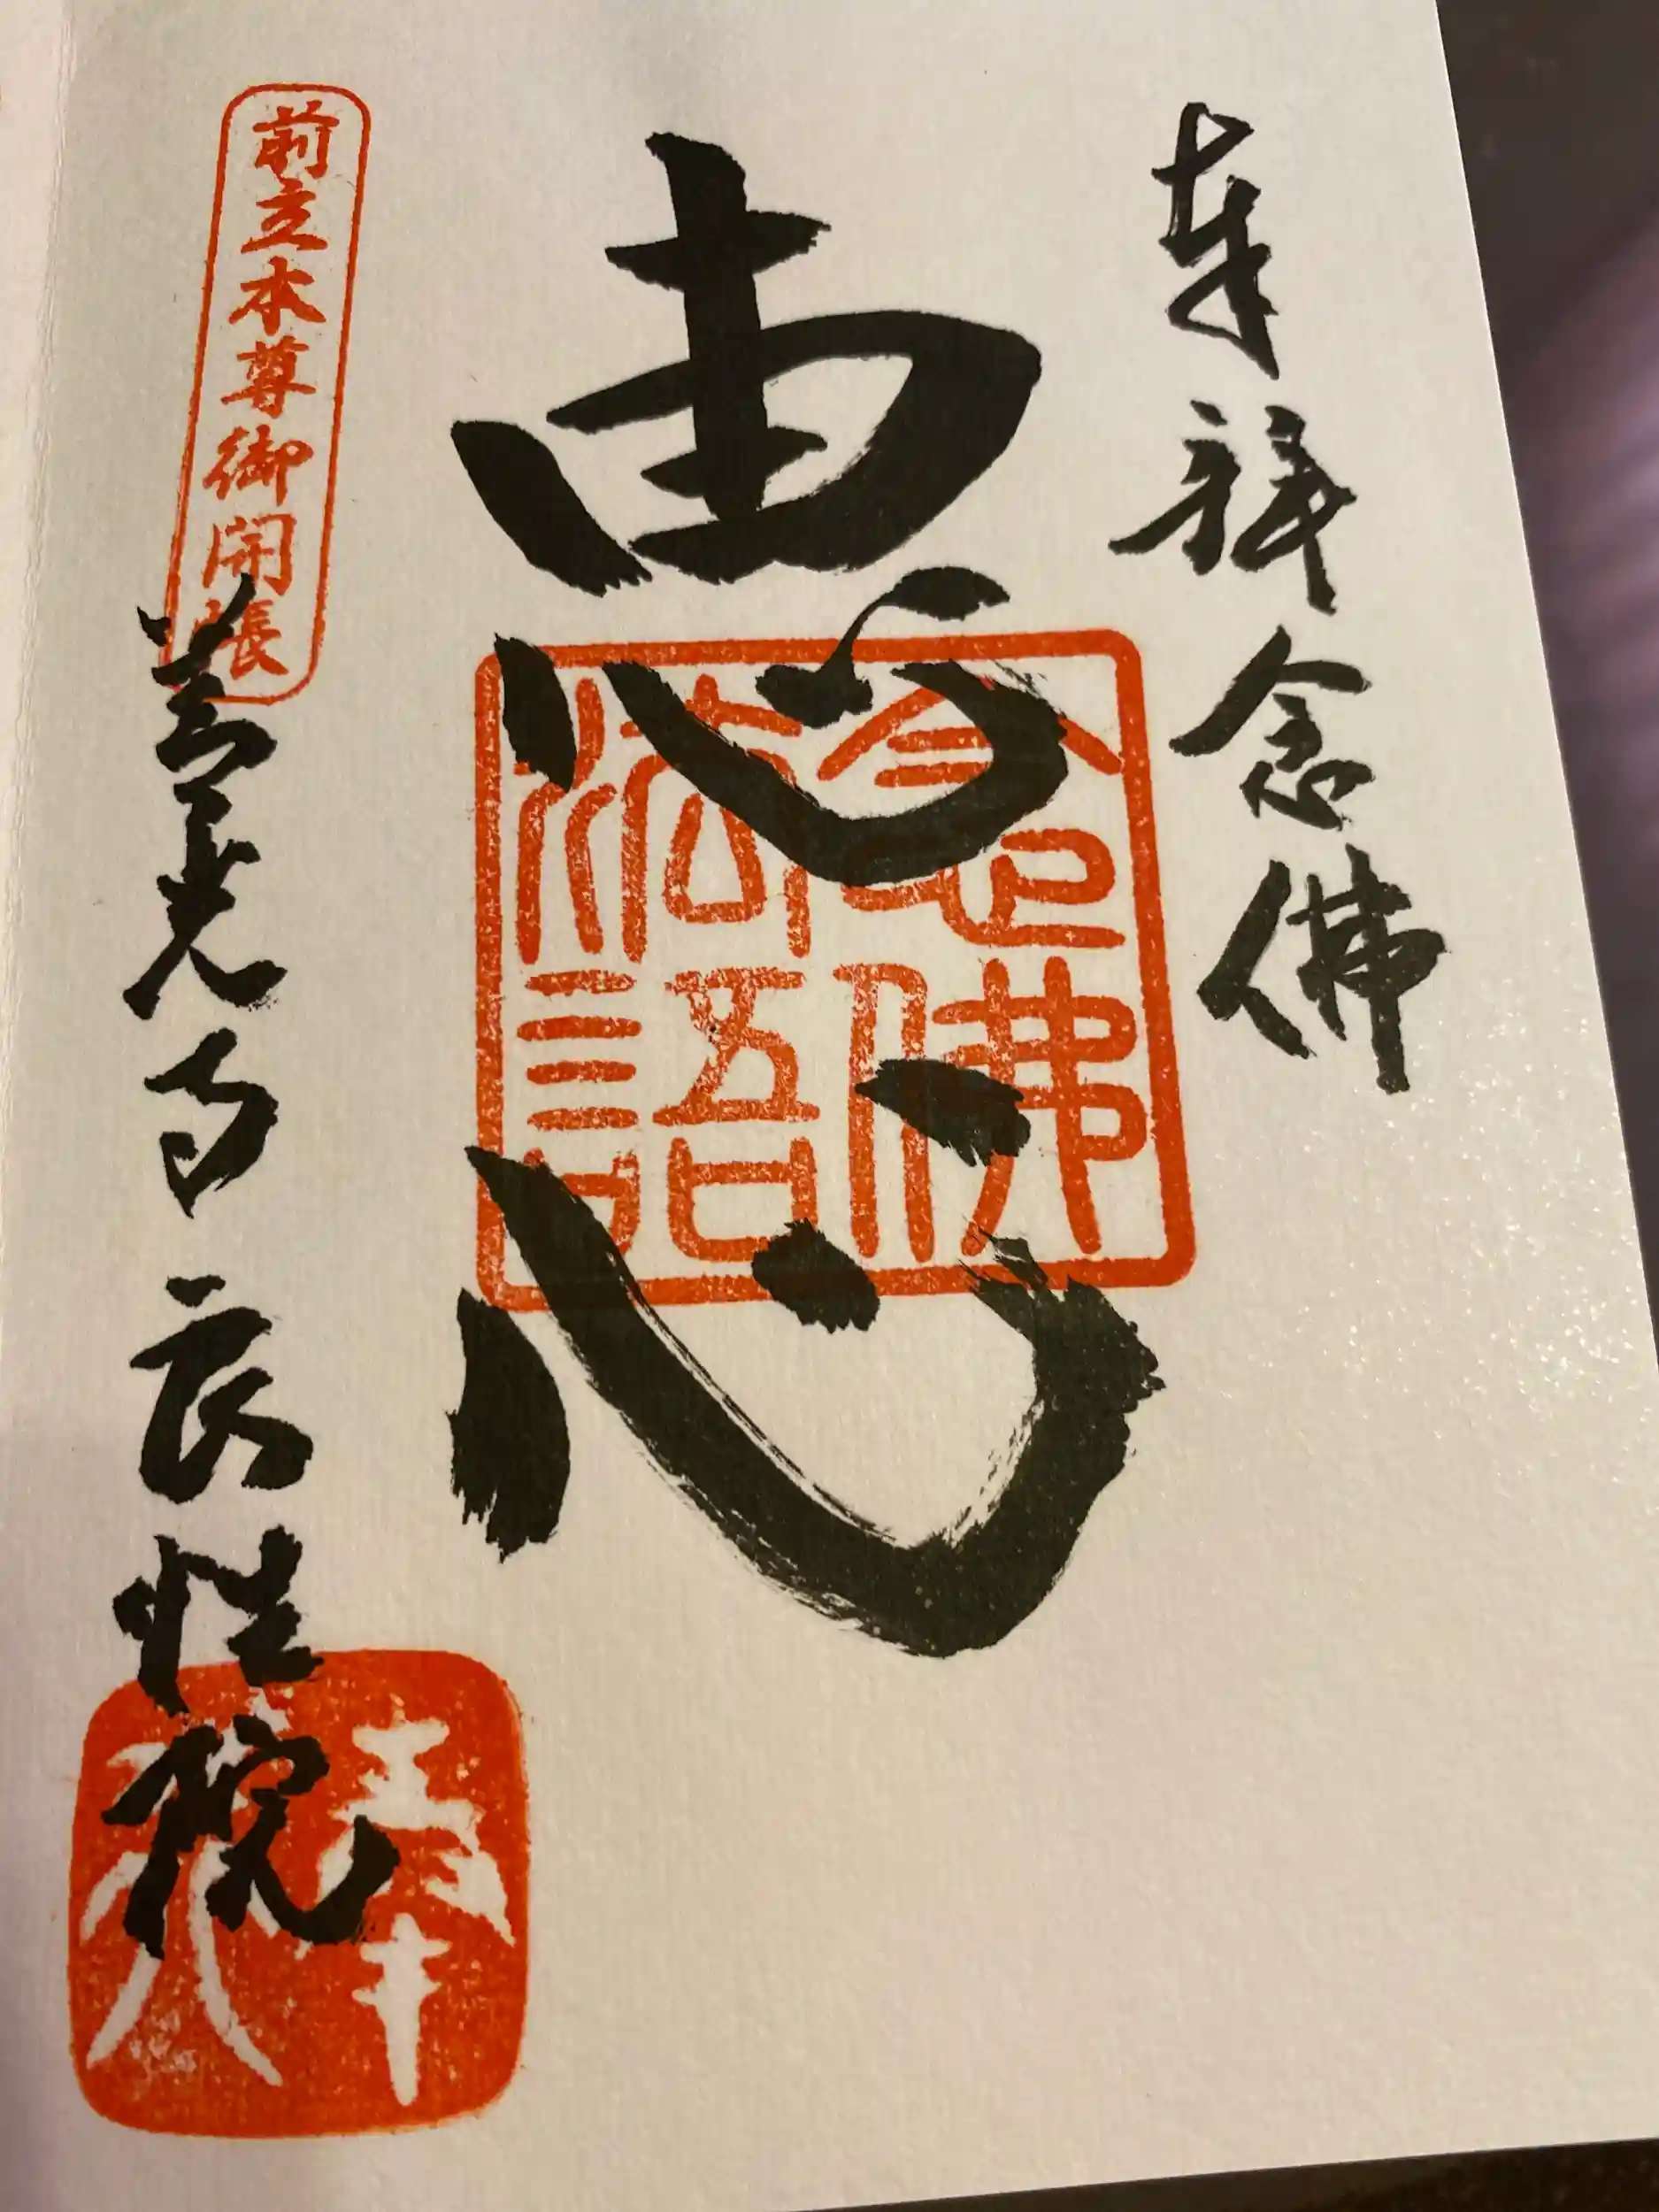 奉拝 念佛
恵心
念佛
法語
前立本尊御開帳
善光寺 良性院